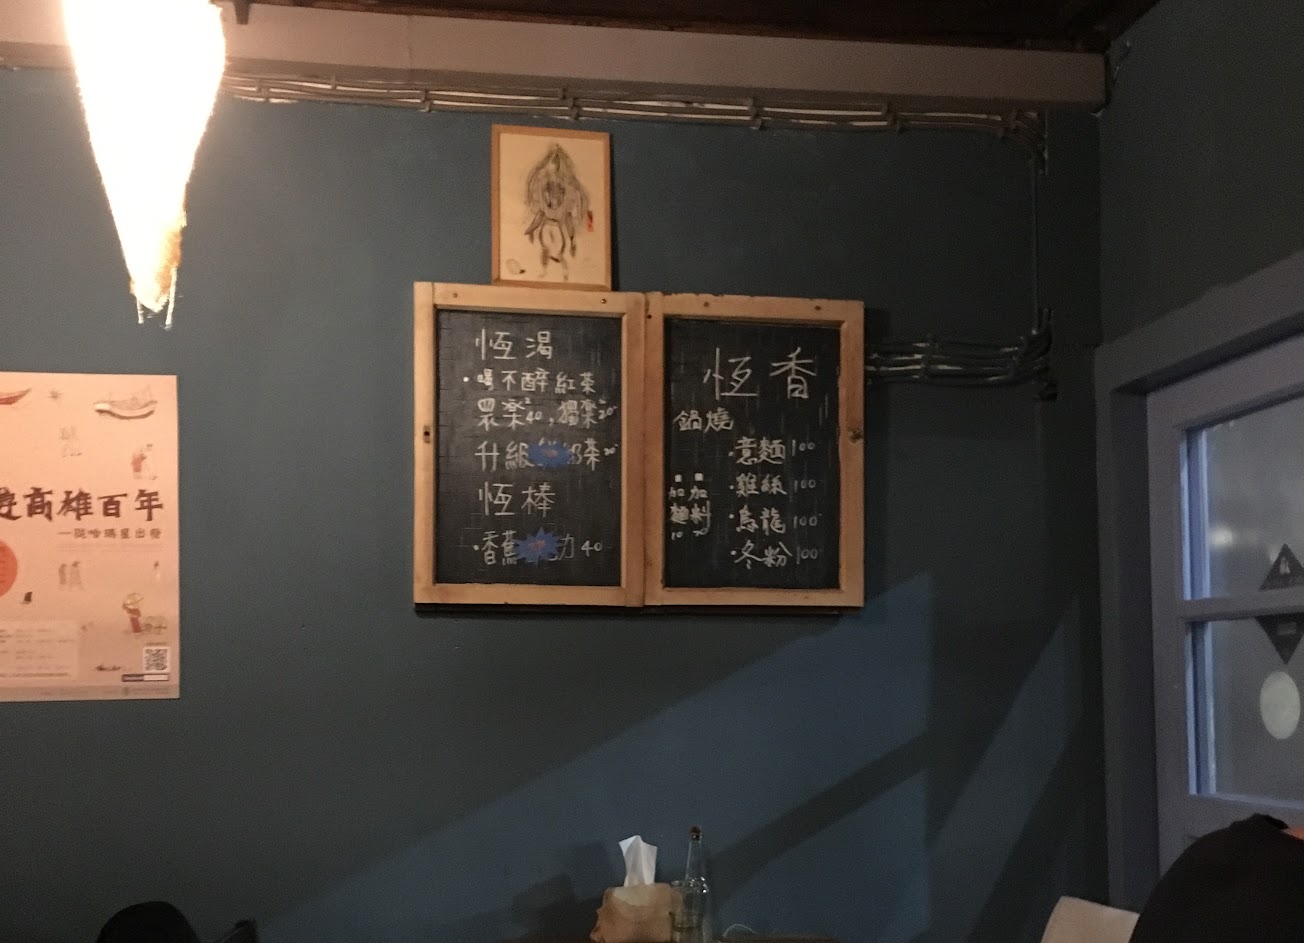 遊高雄百年
一從哈瑪星出發
恆渴
·喝不醉紅茶
眾楽40，獨楽20
升級 奶茶20
恆棒
·香蕉 力40
恆香
鍋燒
·意麵100
·雞絲100
·烏龍100
·冬粉100
加麵10
加料20